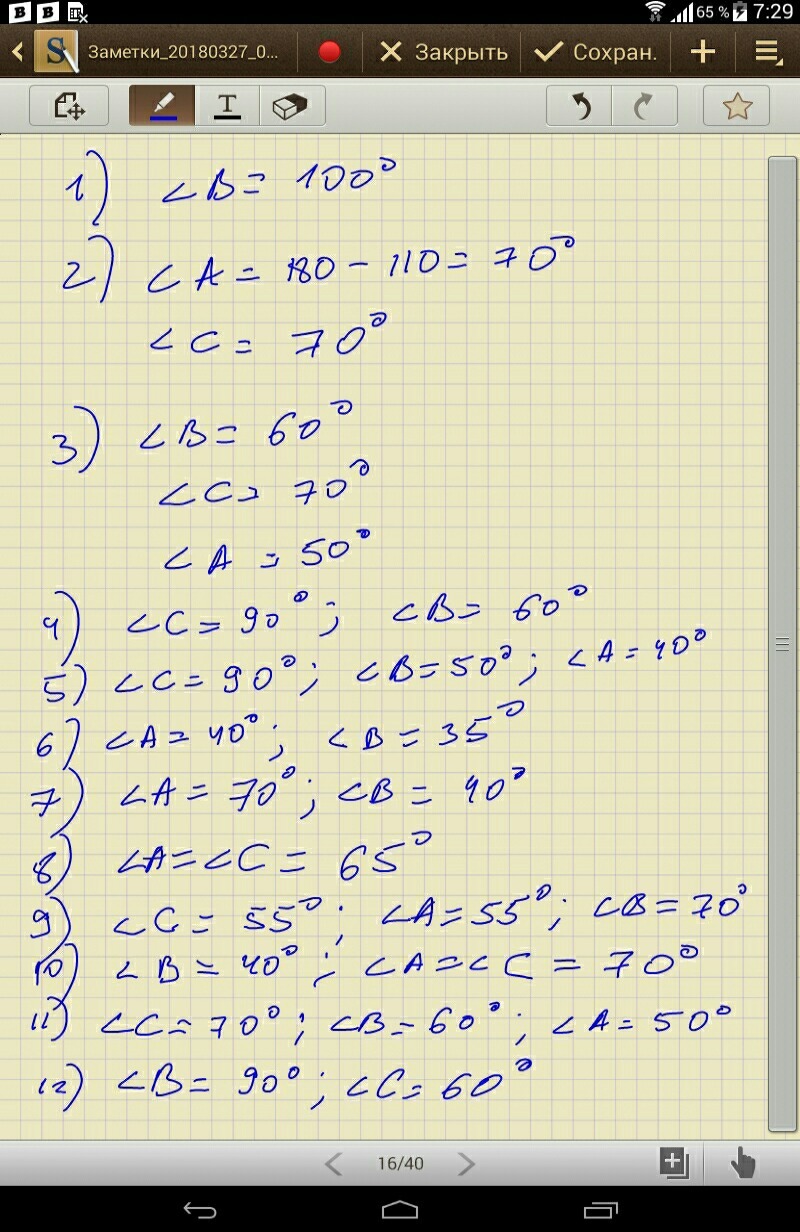 65 % 7:29
Заметки_20180327_0... Закрыть Сохран.
T
1) ∠B = 100°
2) ∠A = 180 - 110 = 70°
∠C = 70°
3) ∠B = 60°
∠C = 70°
∠A = 50°
4) ∠C = 90°; ∠B = 60°
5) ∠C = 90°; ∠B = 50°; ∠A = 40°
6) ∠A = 40°; ∠B = 35°
7) ∠A = 70°; ∠B = 40°
8) ∠A = ∠C = 65°
9) ∠C = 55°; ∠A = 55°; ∠B = 70°
10) ∠B = 40°; ∠A = ∠C = 70°
11) ∠C = 70°; ∠B = 60°; ∠A = 50°
12) ∠B = 90°; ∠C = 60°
16/40